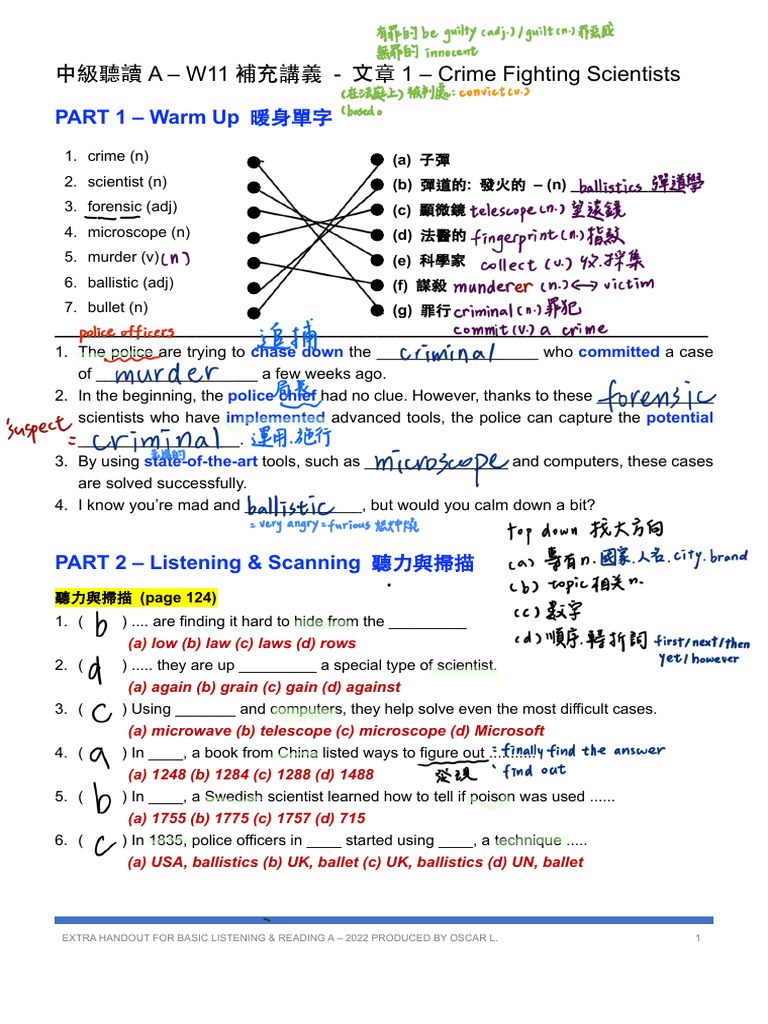 有罪的 be guilty (adj.) / guilt (n.) 罪惡感
無罪的 innocent
中級聽讀 A – W11 補充講義 - 文章 1 – Crime Fighting Scientists
(在法庭上) 被判處: convict (v.)
PART 1 – Warm Up 暖身單字 (based。
1. crime (n) (a) 子彈
2. scientist (n) (b) 彈道的: 發火的 – (n) ballistics 彈道學
3. forensic (adj) (c) 顯微鏡 telescope (n.) 望遠鏡
4. microscope (n) (d) 法醫的 fingerprint (n.) 指紋
5. murder (v) (n) (e) 科學家 collect (v.) 收.採集
6. ballistic (adj) (f) 謀殺 munderer (n.) <-> victim
7. bullet (n) (g) 罪行 criminal (n.) 罪犯
commit (v.) a crime
police officers 追捕
1. The police are trying to chase down the criminal who committed a case
of murder a few weeks ago.
局長
2. In the beginning, the police chief had no clue. However, thanks to these forensic
'suspect scientists who have implemented advanced tools, the police can capture the potential
= criminal. 運用.施行
先進的
3. By using state-of-the-art tools, such as microscope and computers, these cases
are solved successfully.
4. I know you're mad and ballistic, but would you calm down a bit?
= very angry = furious
top down 找大方向
PART 2 – Listening & Scanning 聽力與掃描
(a) 專有n. 國家.人名.city.brand
(b) topic 相关 n.
聽力與掃描 (page 124)
(c) 數字
1. ( b ) .... are finding it hard to hide from the _________
(d) 順序.轉折詞 first/next/then
yet/however
(a) low (b) law (c) laws (d) rows
2. ( d ) ..... they are up _________ a special type of scientist.
(a) again (b) grain (c) gain (d) against
3. ( c ) Using _______ and computers, they help solve even the most difficult cases.
(a) microwave (b) telescope (c) microscope (d) Microsoft
4. ( a ) In ____, a book from China listed ways to figure out ........... = finally find the answer
發現 find out
(a) 1248 (b) 1284 (c) 1288 (d) 1488
5. ( b ) In ____, a Swedish scientist learned how to tell if poison was used ......
(a) 1755 (b) 1775 (c) 1757 (d) 715
6. ( c ) In 1835, police officers in ____ started using ____, a technique .....
(a) USA, ballistics (b) UK, ballet (c) UK, ballistics (d) UN, ballet
EXTRA HANDOUT FOR BASIC LISTENING & READING A – 2022 PRODUCED BY OSCAR L. 1